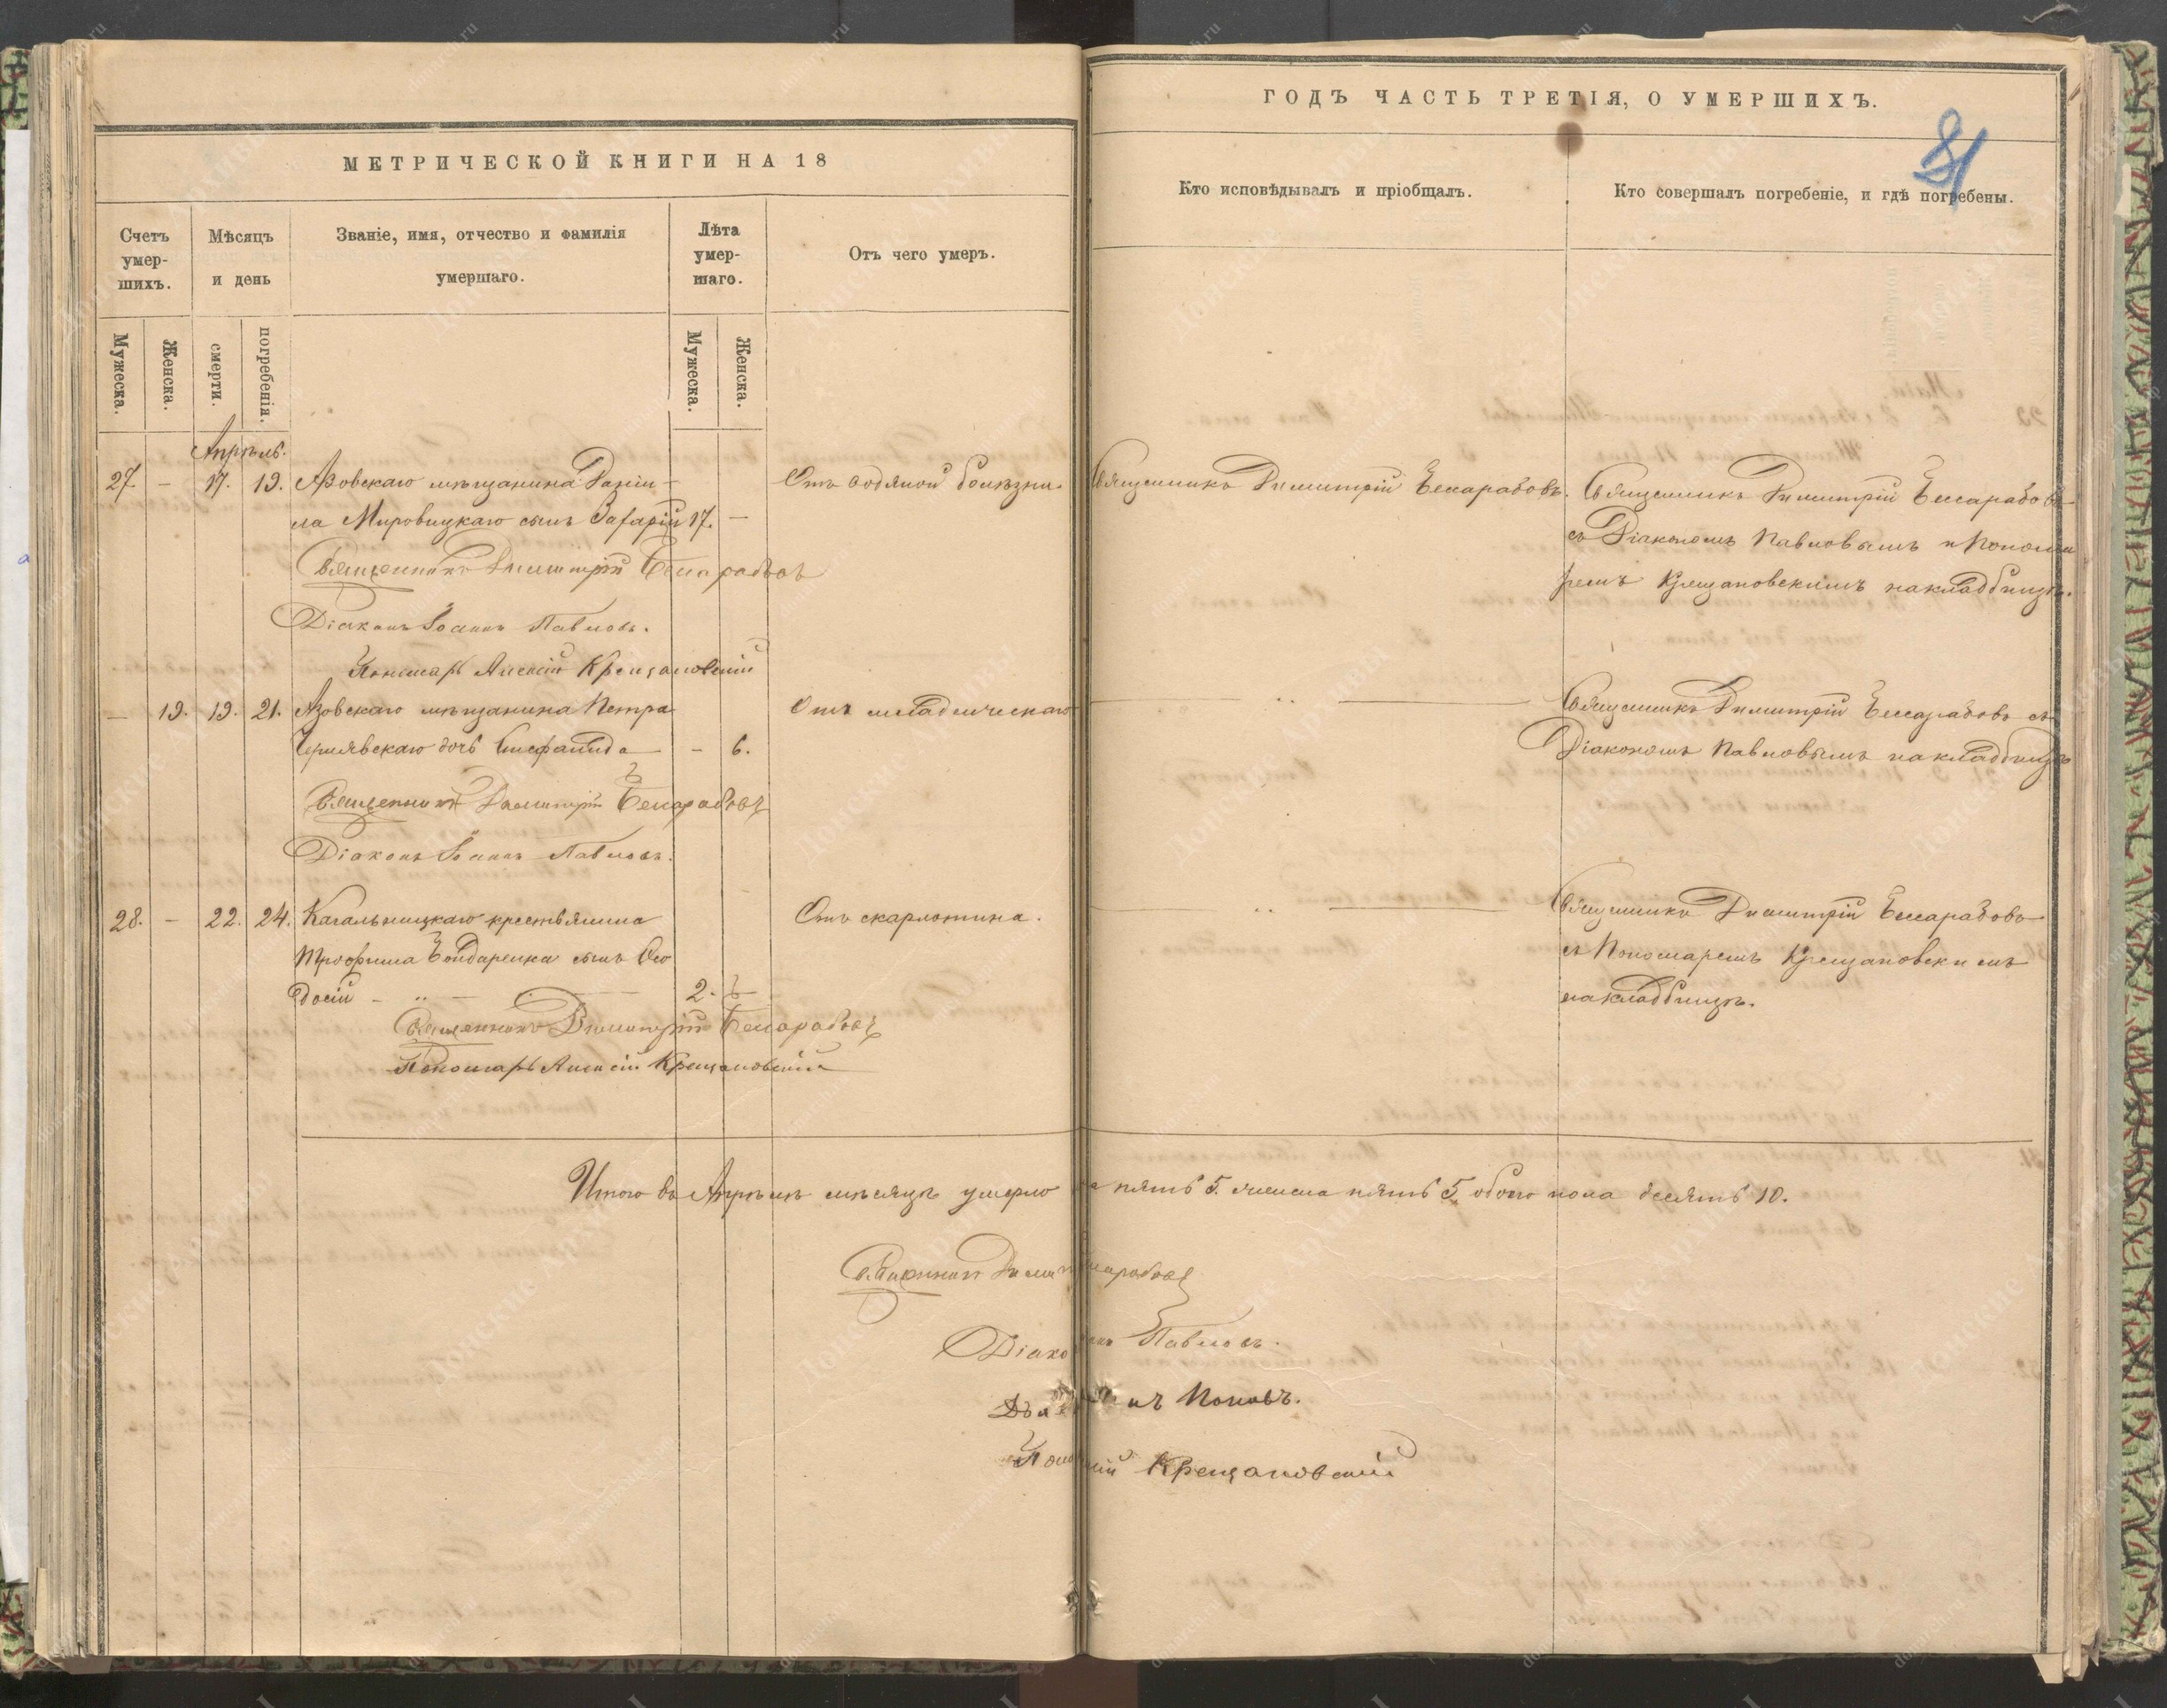 МЕТРИЧЕСКОЙ КНИГИ НА 18
Счетъ умер-шихъ.
Мѣсяцъ и день
Званіе, имя, отчество и фамилія умершаго.
Лѣта умер-шаго.
Отъ чего умеръ.
Мужеска.
Женска.
смерти.
погребенія.
Мужеска.
Женска.
Апрѣль.
27. — 17. 19. Азовскаго мѣщанина Даніи-
ла Мировицкаго сынъ Захарій 17. —
Отъ водяной болѣзни.
Священникъ Димитрій Бессарабовъ
Діаконъ Іоаннъ Павловъ.
Пономарь Алексій Крещановскій
— 19. 19. 21. Азовскаго мѣщанина Петра
Чернявскаго дочь Стефанида — – 6.
Отъ младенческаго
Священникъ Димитрій Бессарабовъ
Діаконъ Іоаннъ Павловъ.
28. — 22. 24. Кагальницкаго крестьянина
Трофима Бондаренка сынъ Ѳео
досій 2. —
Отъ скарлатина.
Священникъ Димитрій Бессарабовъ
Пономарь Алексій Крещановскій
Итого въ Апрѣлѣ мѣсяцѣ умерло
Священникъ
ГОДЪ ЧАСТЬ ТРЕТІЯ, О УМЕРШИХЪ.
81
Кто исповѣдывалъ и пріобщалъ.
Кто совершалъ погребеніе, и гдѣ погребены.
Священникъ Димитрій Бессарабовъ.
Священникъ Димитрій Бессарабовъ
съ Діакономъ Павловымъ и Понома
ремъ Крещановскимъ на кладбищѣ.
Священникъ Димитрій Бессарабовъ съ
Діакономъ Павловымъ на кладбищѣ
Священникъ Димитрій Бессарабовъ
съ Пономаремъ Крещановскимъ
на кладбищѣ.
пять 5. женска пять 5, обоего пола десять 10.
Павловъ.
Поповъ.
Крещановскій